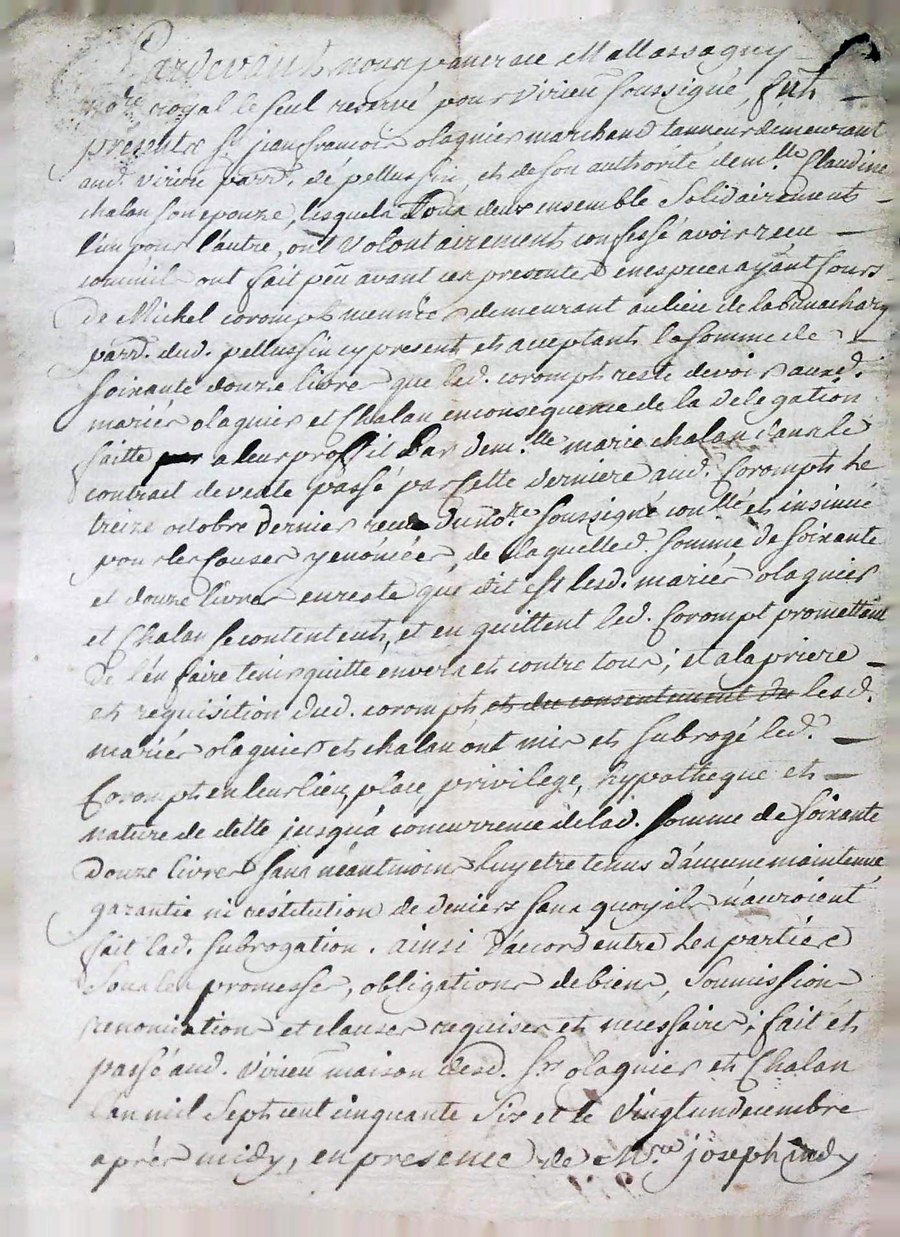 Pardevant nous
no.re royal le seul reservé pour virieu soussigné, fut
present sr. jean francois olagnier marchand tanneur demeurant
aud. virieu parr. dé pellussin, et de son authorité dem.lle Claudine
chalan son epouze, lesquels tous deux ensemble Solidairement
l'un pour l'autre, ont volontairement confessé avoir receu
comme il ont fait peu avant ces presentes en especes ayant cours
De Michel corompt meunier demeurant au lieu de
parr. dud. pellussin cy present et acceptant la somme de
soixante douze livres que led. corompt reste devoir ausd.
mariés olagnier et Chalan en consequence de la delegation
faitte a leur proffit par dem.lle marie chalan dans le
contrat de vente passé par cette derniere aud. Corompt le
treize octobre dernier receu du no.re soussigné con.llé et insinué
pour les causes y enoncées, de laquelle d. somme de soixante
et douze livres en reste que dit est lesd. mariés olagnier
et Chalan se contentent, et en quittent led. Corompt promettant
de l'en faire tenir quitte envers et contre tous; et a la priere
et requisition dud. corompt et du consentement du lesd.
mariés olagnier et chalan ont mis et subrogé led.
Corompt en leur lieu, place, privilege, hypotheque et
nature de dette jusqu'a concurrence de lad. somme de soixante
douze livres sans néantmoins luy etre tenus d'aucune maintenue
garantie ni restitution de deniers sans quoy ils n'auroient
fait lad. subrogation. ainsi d'acord entre les parties
sous les promesses, obligations de biens, soumissions
renonciation et clauses requises et necessaires; fait et
passé aud. virieu maison desd. srs olagnier et Chalan
l'an mil sept cent cinquante six et le vingt un decembre
après midy, en presence de M.re joseph